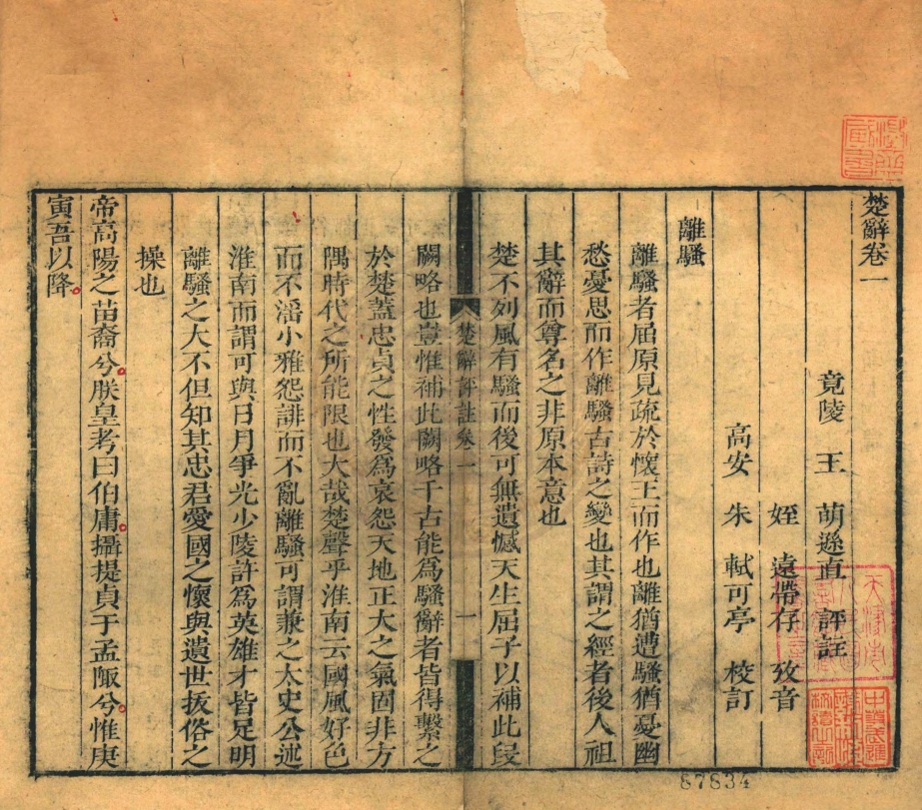 楚辭卷一
竟陵 王 萌遜直 評註
姪 遠帶存 攷音
高安 朱 軾可亭 校訂
離騷
離騷者屈原見疏於懷王而作也離猶遭騷猶憂幽
愁憂思而作離騷古詩之變也其謂之經者後人祖
其辭而尊名之非原本意也
楚不列風有騷而後可無遺憾天生屈子以補此段
闕略也豈惟補此闕略千古能爲騷辭者皆得繫之
於楚蓋忠貞之性發爲哀怨天地正大之氣固非方
隅時代之所能限也大哉楚聲乎淮南云國風好色
而不滛小雅怨誹而不亂離騷可謂兼之太史公述
淮南而謂可與日月爭光少陵許爲英雄才皆足明
離騷之大不但知其忠君愛國之懷與遺世拔俗之
操也
帝高陽之苗裔兮。朕皇考曰伯庸。攝提貞于孟陬兮。惟庚
寅吾以降。
楚辭評註卷一
一
87834